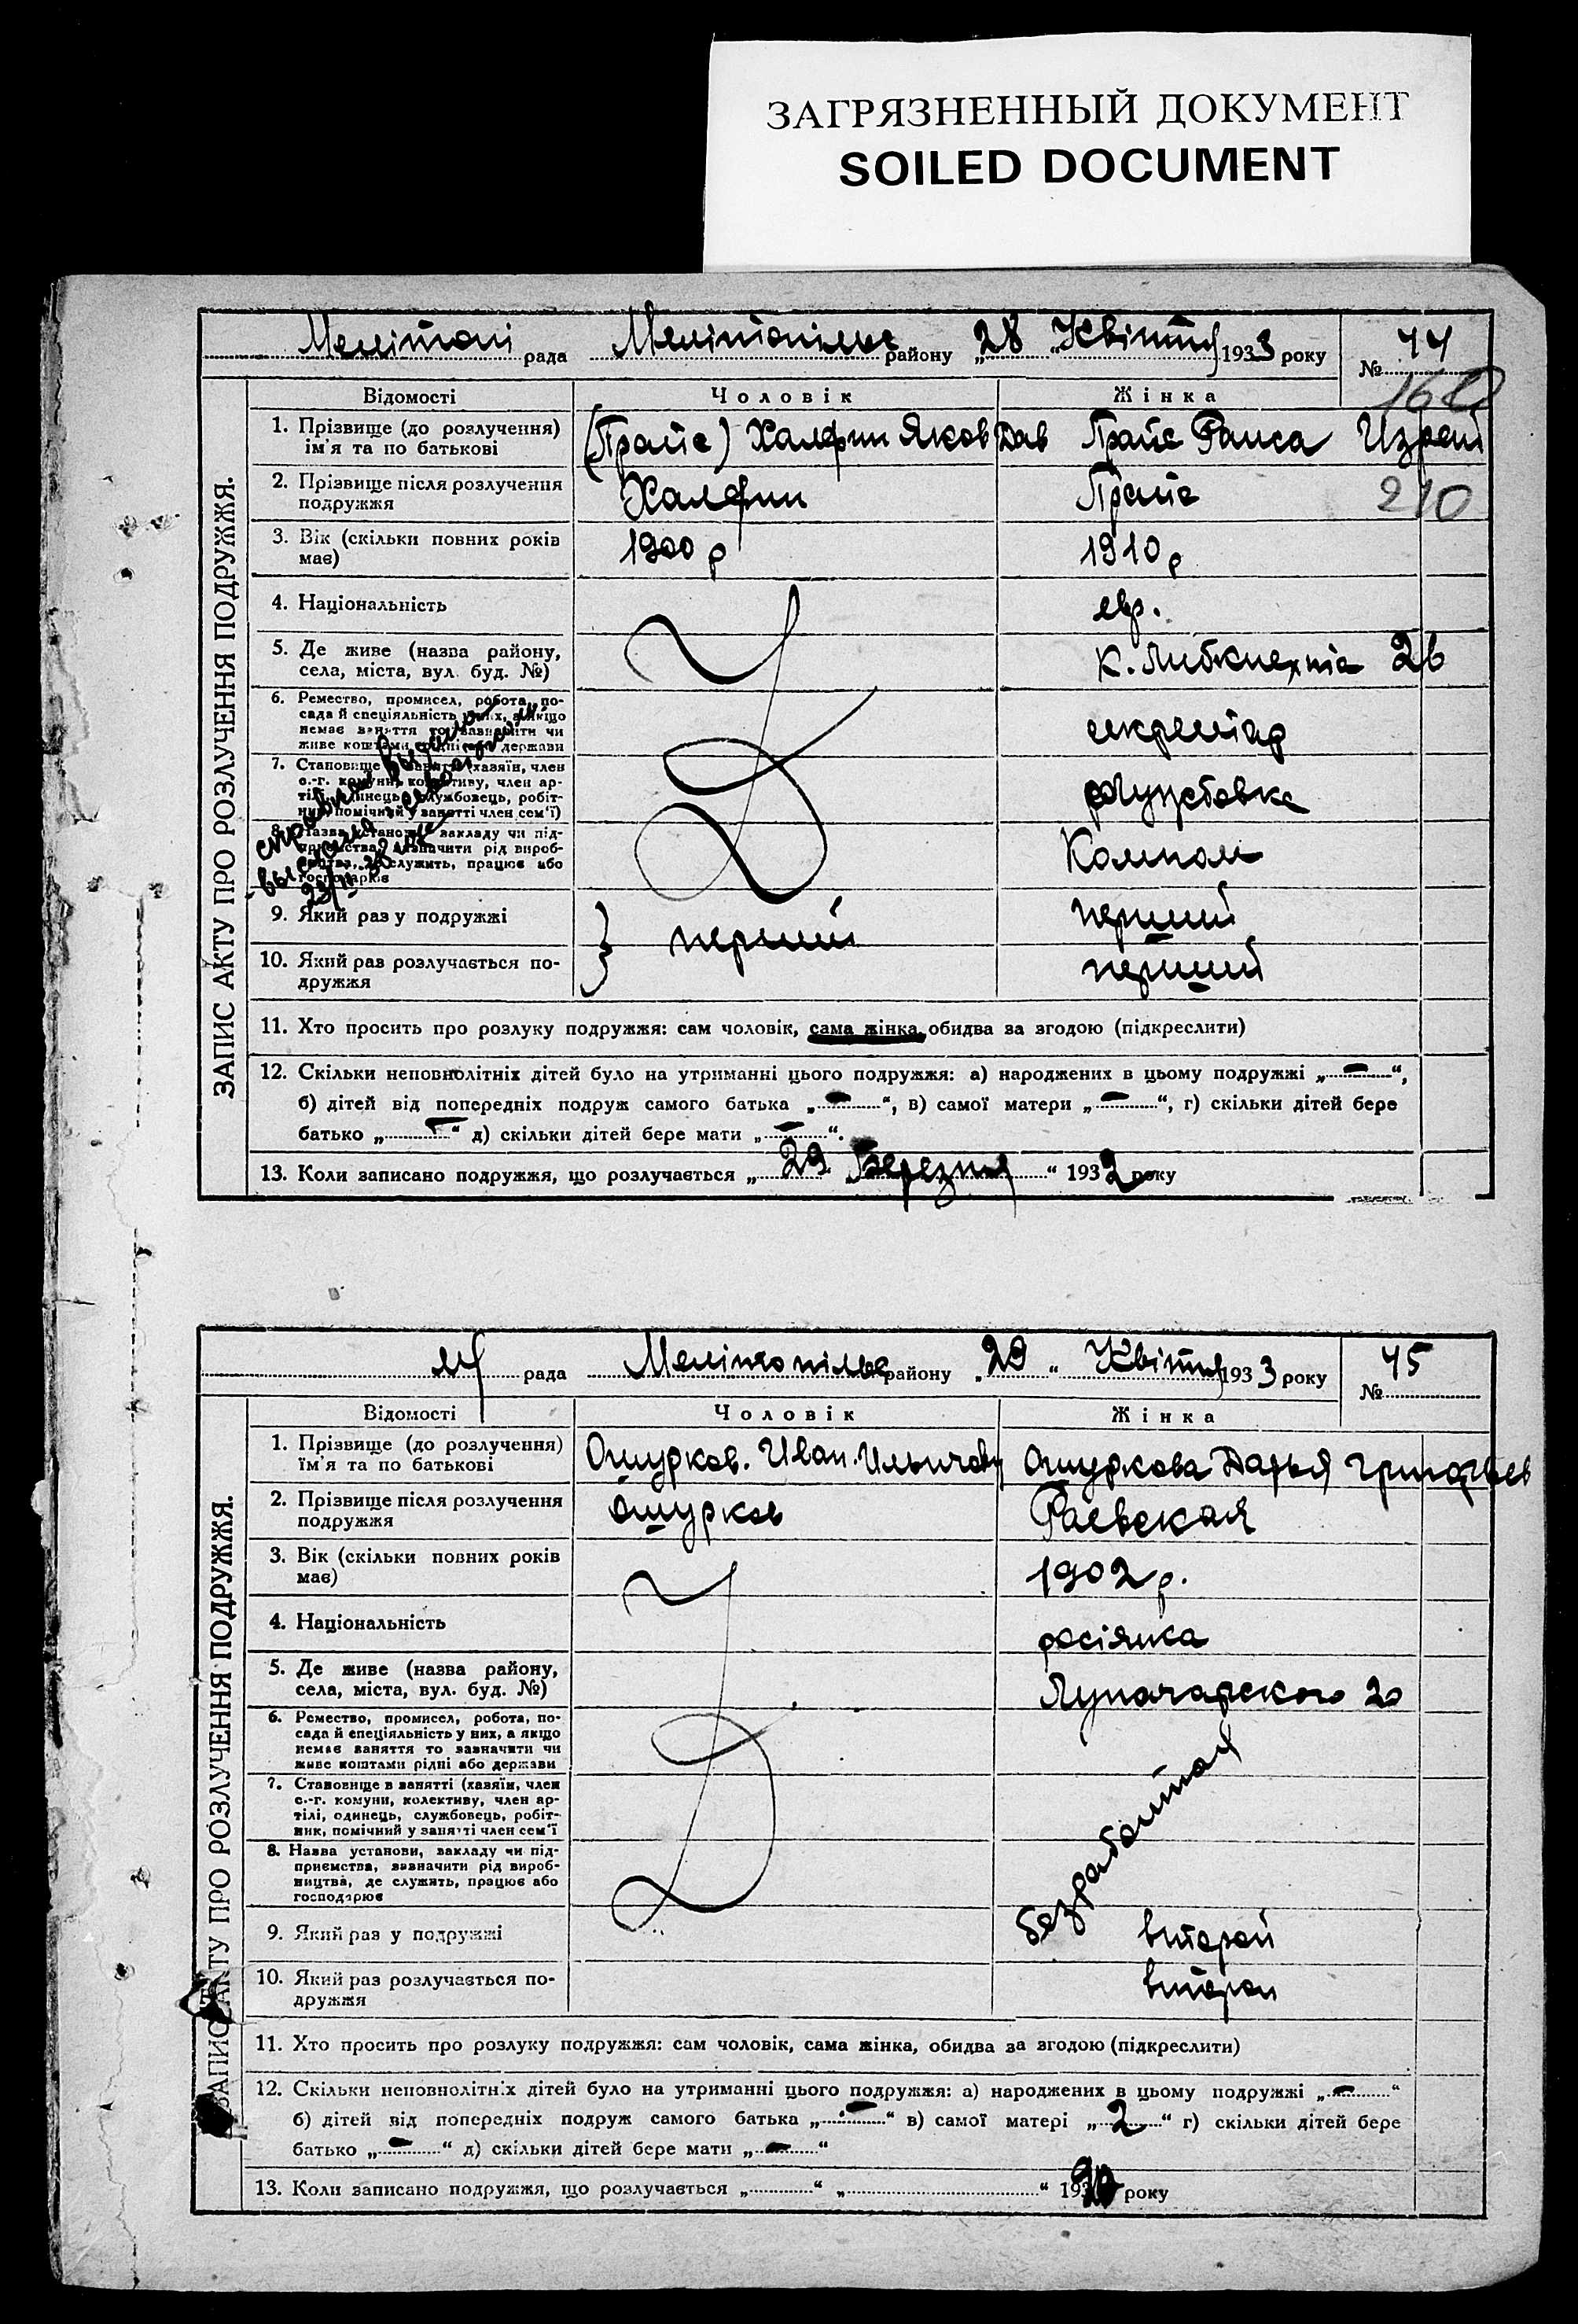 ЗАГРЯЗНЕННЫЙ ДОКУМЕНТ
SOILED DOCUMENT
Мелітопі рада Мелітопільс району „28 „Квітня 1933 року № 44
160
Відомості Чоловік Жінка
ЗАПИС АКТУ ПРО РОЗЛУЧЕННЯ ПОДРУЖЖЯ.
1. Прізвище (до розлучення) (Прайс) Халфин Яков Дав Прайс Раиса Израил
ім'я та по батькові
2. Прізвище після розлучення Халфин Прайс 210
подружжя
3. Вік (скільки повних років 1900 р 1910 р
має)
4. Національність евр.
5. Де живе (назва району, К. Либкнехта 26
села, міста, вул. буд. №)
6. Ремество, промисел, робота, по-
сада й спеціяльність у них, а якщо секретар
немає заняття то зазначити чи
живе коштами рідні або держави
7. Становище в занятті (хазяїн, член
с.-г. комуни, колективу, член ар-
тілі, одинець, службовець, робіт-
ник, помічний у занятті член сем'ї)
8. Назва установи, закладу чи під-
приємства, зазначити рід вироб-
ництва, де служить, працює або
господарює
справка выдана
23/II 38
9. Який раз у подружжі перший перший
10. Який раз розлучається по- перший
дружжя
11. Хто просить про розлуку подружжя: сам чоловік, сама жінка, обидва за згодою (підкреслити)
12. Скільки неповнолітніх дітей було на утриманні цього подружжя: а) народжених в цьому подружжі „—“,
б) дітей від попередніх подруж самого батька „—“, в) самої матери „—“, г) скільки дітей бере
батько „—“ д) скільки дітей бере мати „—“.
13. Коли записано подружжя, що розлучається „29 „Березня“ 1932 року
рада Мелітопільс району „29 „ Квітня 1933 року № 45
Відомості Чоловік Жінка
ЗАПИС АКТУ ПРО РОЗЛУЧЕННЯ ПОДРУЖЖЯ.
1. Прізвище (до розлучення) Ошурков. Иван. Ильичов Ошуркова Дарья Григорьев
ім'я та по батькові
2. Прізвище після розлучення Ошурков Раевская
подружжя
3. Вік (скільки повних років 1902 р.
має)
4. Національність росіянка
5. Де живе (назва району, Луначарского 20
села, міста, вул. буд. №)
6. Ремество, промисел, робота, по-
сада й спеціяльність у них, а якщо
немає заняття то зазначити чи
живе коштами рідні або держави
7. Становище в занятті (хазяїн, член
с.-г. комуни, колективу, член ар-
тілі, одинець, службовець, робіт-
ник, помічний у занятті член сем'ї
8. Назва установи, закладу чи під-
приємства, зазначити рід вироб-
ництва, де служить, працює або
господарює
безработная
9. Який раз у подружжі второй
10. Який раз розлучається по- второй
дружжя
11. Хто просить про розлуку подружжя: сам чоловік, сама жінка, обидва за згодою (підкреслити)
12. Скільки неповнолітніх дітей було на утриманні цього подружжя: а) народжених в цьому подружжі „—“
б) дітей від попередніх подруж самого батька „—“ в) самої матері „2“ г) скільки дітей бере
батько „—“ д) скільки дітей бере мати „—“
13. Коли записано подружжя, що розлучається „ “ „ “ 19 року